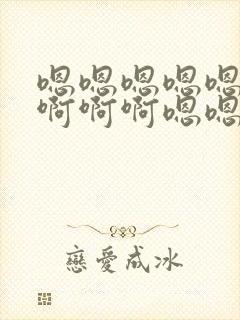 嗯嗯嗯嗯嗯
啊啊啊嗯嗯
戀愛成冰